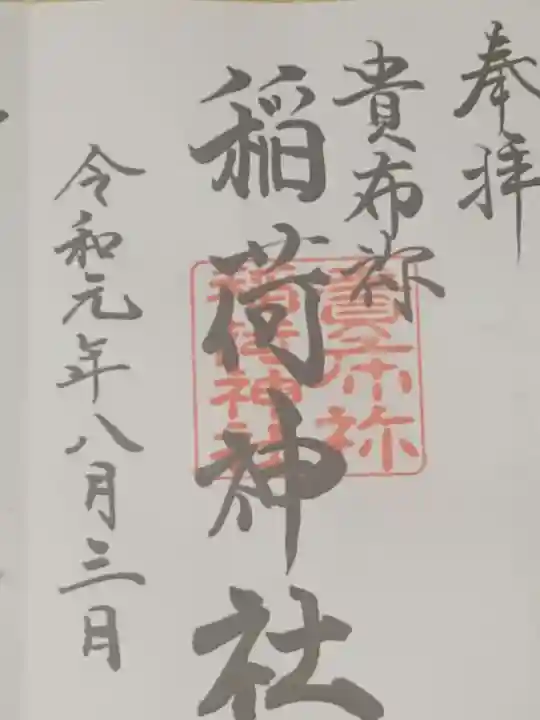 奉拝
貴布祢
稲荷神社
令和元年八月三日
貴布祢
稲荷神社